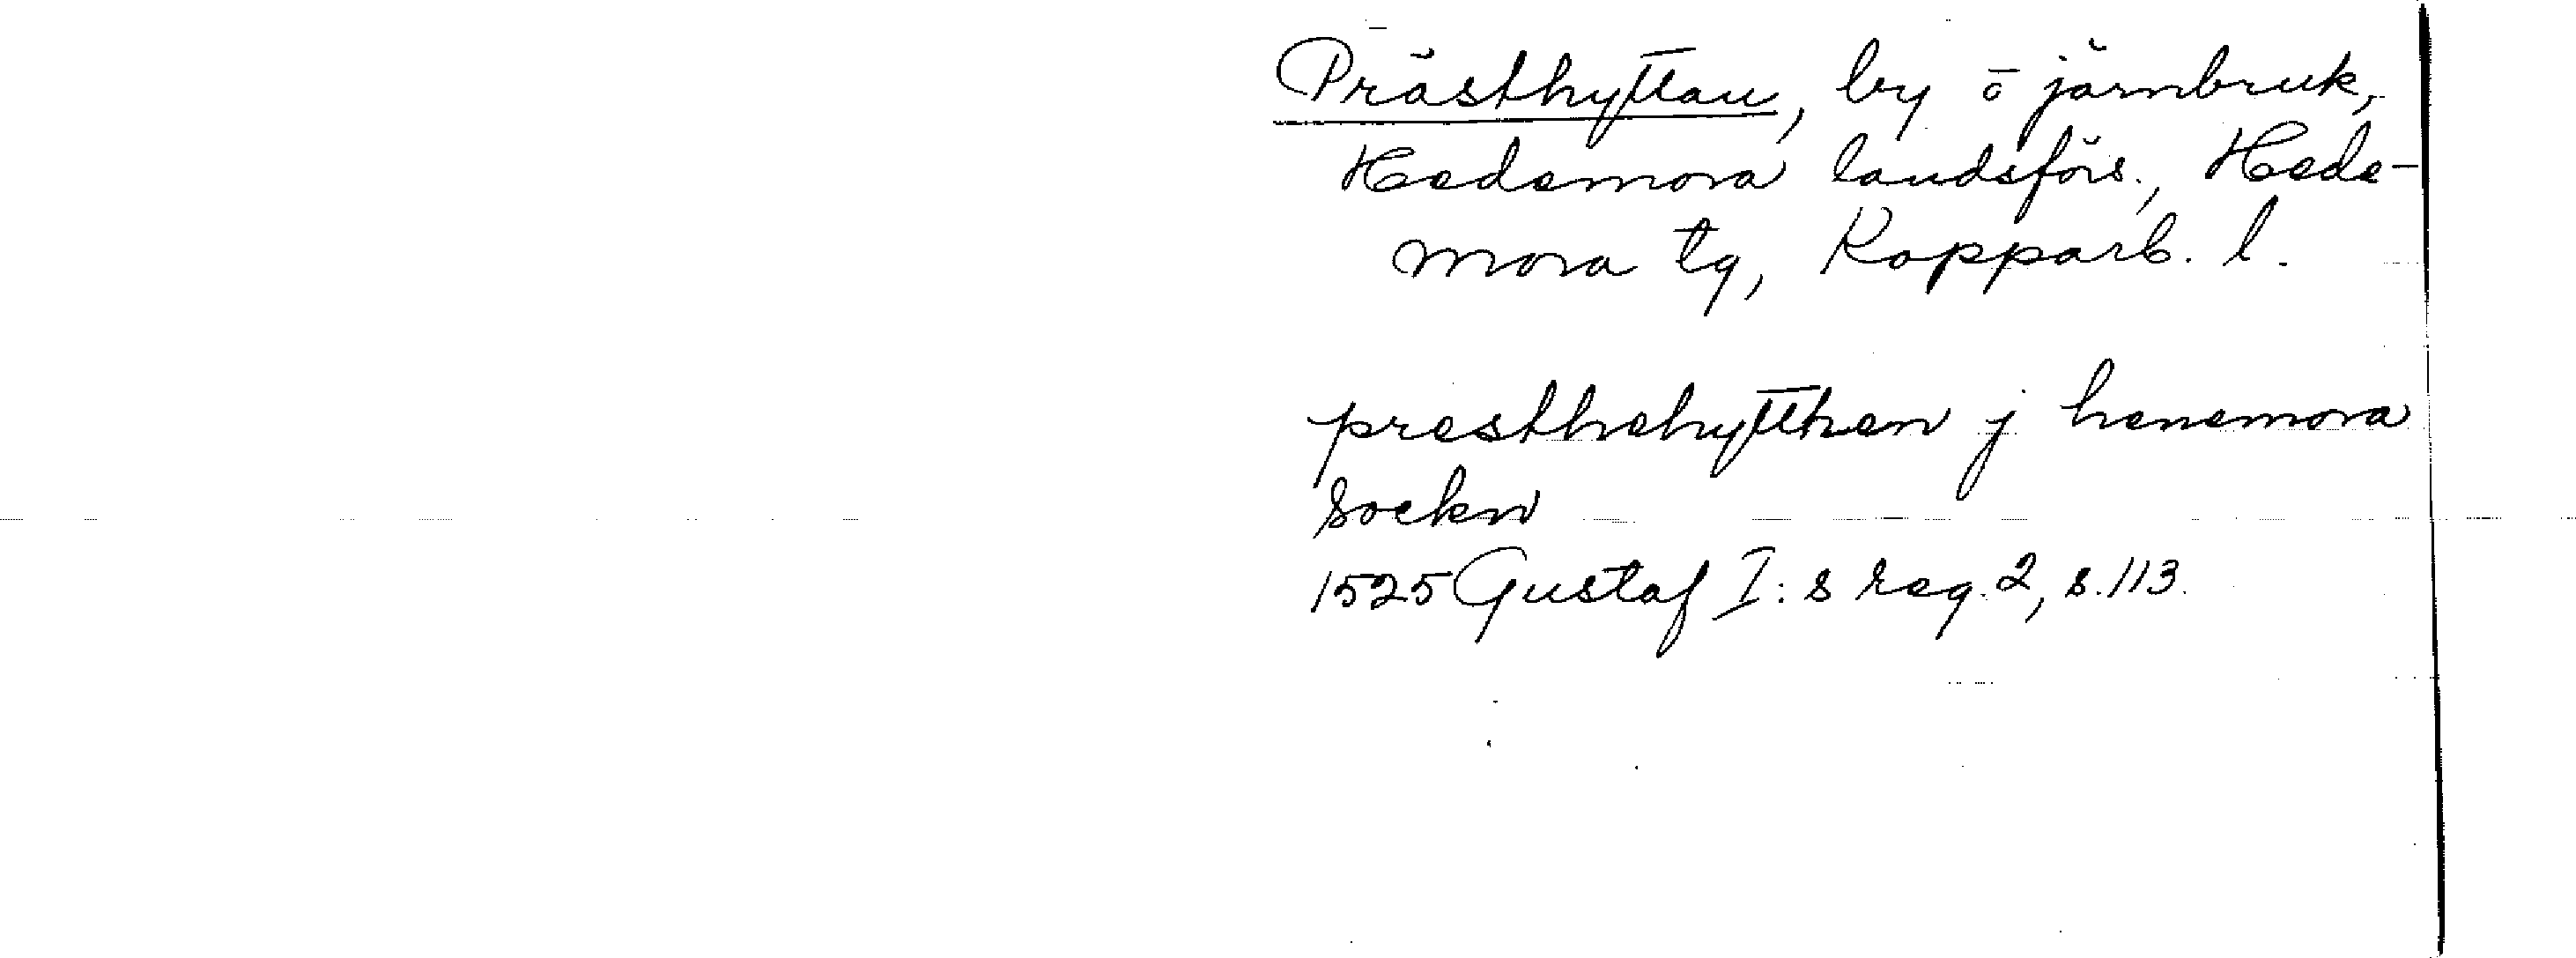 Prästhyttan, by o järnbruk,
Hedemora landsförs., Hede-
mora tg, Kopparb. l.
presthehytthen j henemora
sockn
1525 Gustaf I:s reg. 2, s. 113.